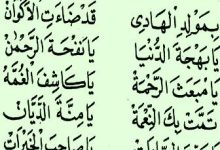 بِمَوْلِدِ الْهَادِي قَدْ ضَاءَتِ الْأَكْوَانُ
يَا بَهْجَةَ الدُّنْيَا يَا نَفْحَةَ الرَّحْمٰنُ
يَا مَبْعَثَ الرَّحْمَةْ يَا كَاشِفَ الْغُمَّةْ
تَمَّتْ بِكَ النِّعْمَةْ يَا مِنَّةَ الدَّيَّانْ
يَا صَاحِبَ الْخَيْرَاتْ